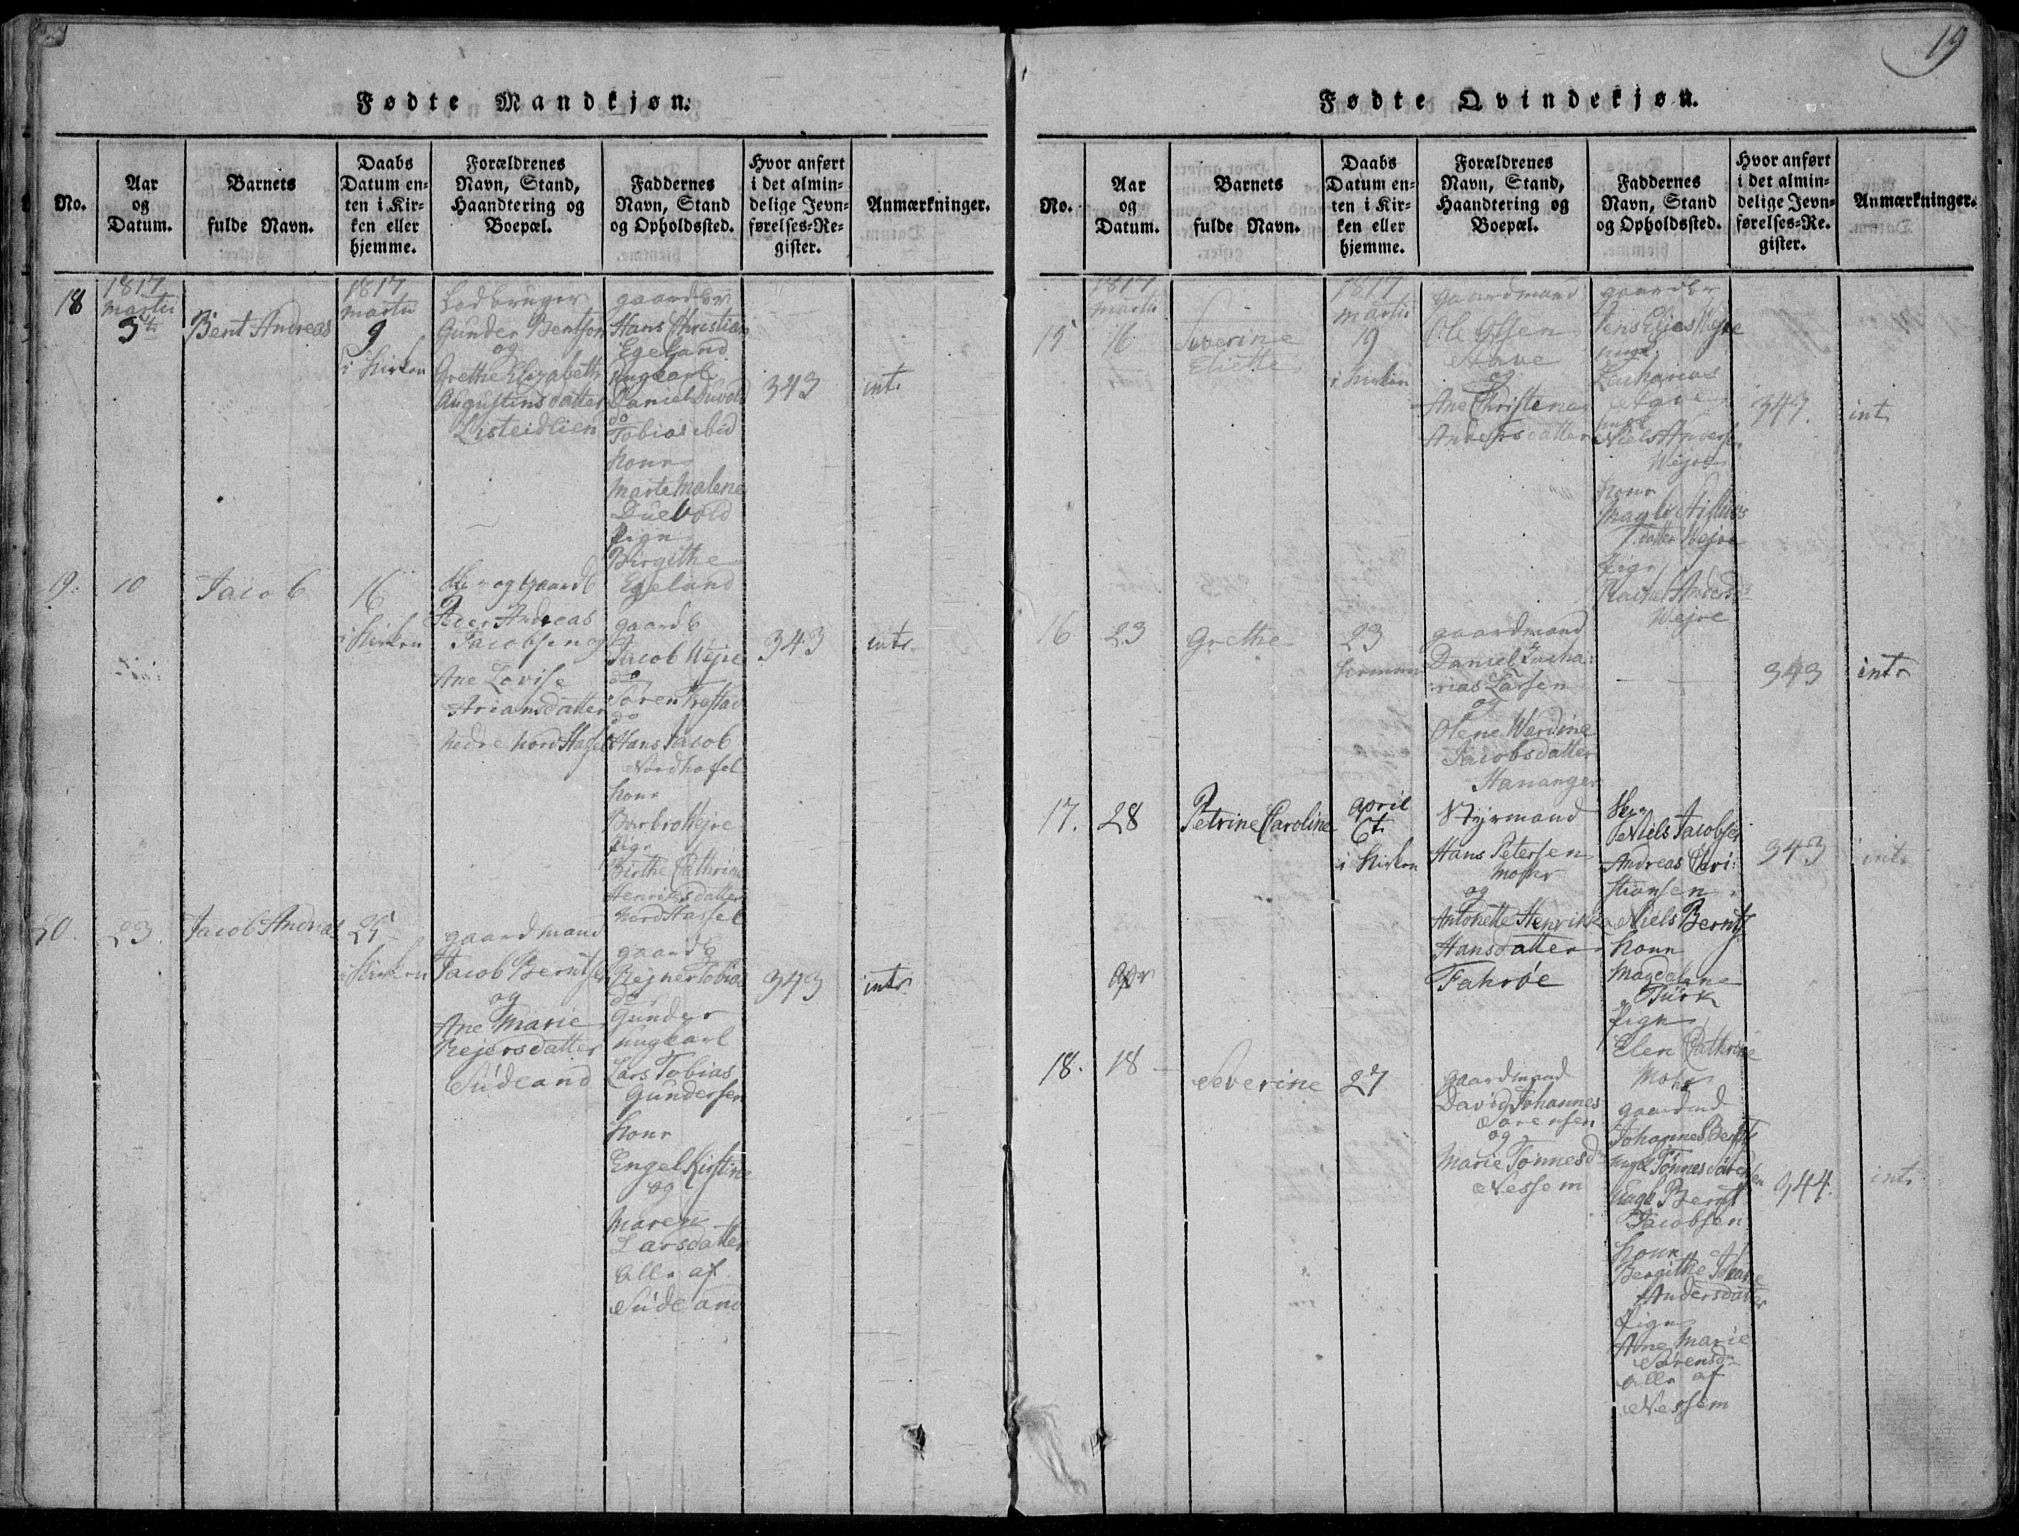 19
Fødte Mandkjøn.
No.
Aar
og
Datum.
Barnets
fulde Navn.
Daabs
Datum en-
ten i Kir-
ken eller
hjemme.
Forældrenes
Navn, Stand,
Haandtering og
Boepæl.
Faddernes
Navn, Stand
og Opholdssted.
Hvor anført
i det almin-
delige Jevn-
førelses-Re-
gister.
Anmærkninger.
18
1817
Martii
5te
Bent Andreas
1817
Martii
9
i Kirken
Gunder Bentsen
og
Grethe Elizabeth
Augustinsdatter
Listeidlien
gaardbr
Hans Christian
Egeland
ungkarl
Daniel Duvold
do
Tobias ibid
konr
Marte Malene
Duevold
pign
Birgithe
Egeland
343
intr
19.
10
Jacob
16
i Kirken
og Gaardb
Andreas
Jacobsen og
Ane Lovise
Ariansdatter
nedre Nord Hassel
gaardb
Jacob Wejre
do
Søren
do
Hans Jacob
Nordhasel
konr
Barbro Wejre
pign
Birthe Cathrine
Henriksdatter
Nord Hassel
343
intr
20.
23
Jacob Andreas
25
i Kirken
gaardmand
Jacob Berntsen
og
Ane Marie
Rejersdatter
Sudeland
gaardb
Rejner Tobias
do
Gunder
ungkarl
Lars Tobias
Gundersen
konr
Engel Kirstine
og
Maren
Larsdatter
alle af
Sudeland
343
intr
Fødte Qvindekjøn.
No.
Aar
og
Datum.
Barnets
fulde Navn.
Daabs
Datum en-
ten i Kir-
ken eller
hjemme.
Forældrenes
Navn, Stand,
Haandtering og
Boepæl.
Faddernes
Navn, Stand
og Opholdssted.
Hvor anført
i det almin-
delige Jevn-
førelses-Re-
gister.
Anmærkninger.
15
1817
Martii
16
Severine
Eliette
1817
Martii
19
i Kirken
gaardmand
Ole Olsen
Stave
og
Ane Christena
Andersdatter
gaardbr
Jens Elias Wejre
ungk
Zacharias
Stave
ungk
Niels Andersen
Wejre
konr
datter Wejre
pign
Rachel Andersd
Wejre
343.
intr
16
23
Grethe
23
hiemme
gaardmand
Daniel Zacha:
rias Larsen
og
Olene Werdine
Jacobsdatter
Hananger
343
intr
17.
28
Petrine Caroline
April
6te
i Kirken
Styrmand
Hans Petersen
og
Antonette Henrikke
Hansdatter
Fahrøe
Niels Jacobsen
Andreas Chri:
stiansen
Niels Bernts
konr
Magdalene
Türk
pign
Elen Cathrine
343
intr
Apr
18.
18
Severine
27
gaardmand
David Johannes
Sørensen
og
Marie Tønnesdr
Nessem
gaardmd
Johannes Bernts
ungk Tønnes Sørensen
ungk Bernt
Jacobsen
konr
Bergithe
Andersdatter
pign
Ane Marie
Sørensdr
alle af
Nessem
344.
intr